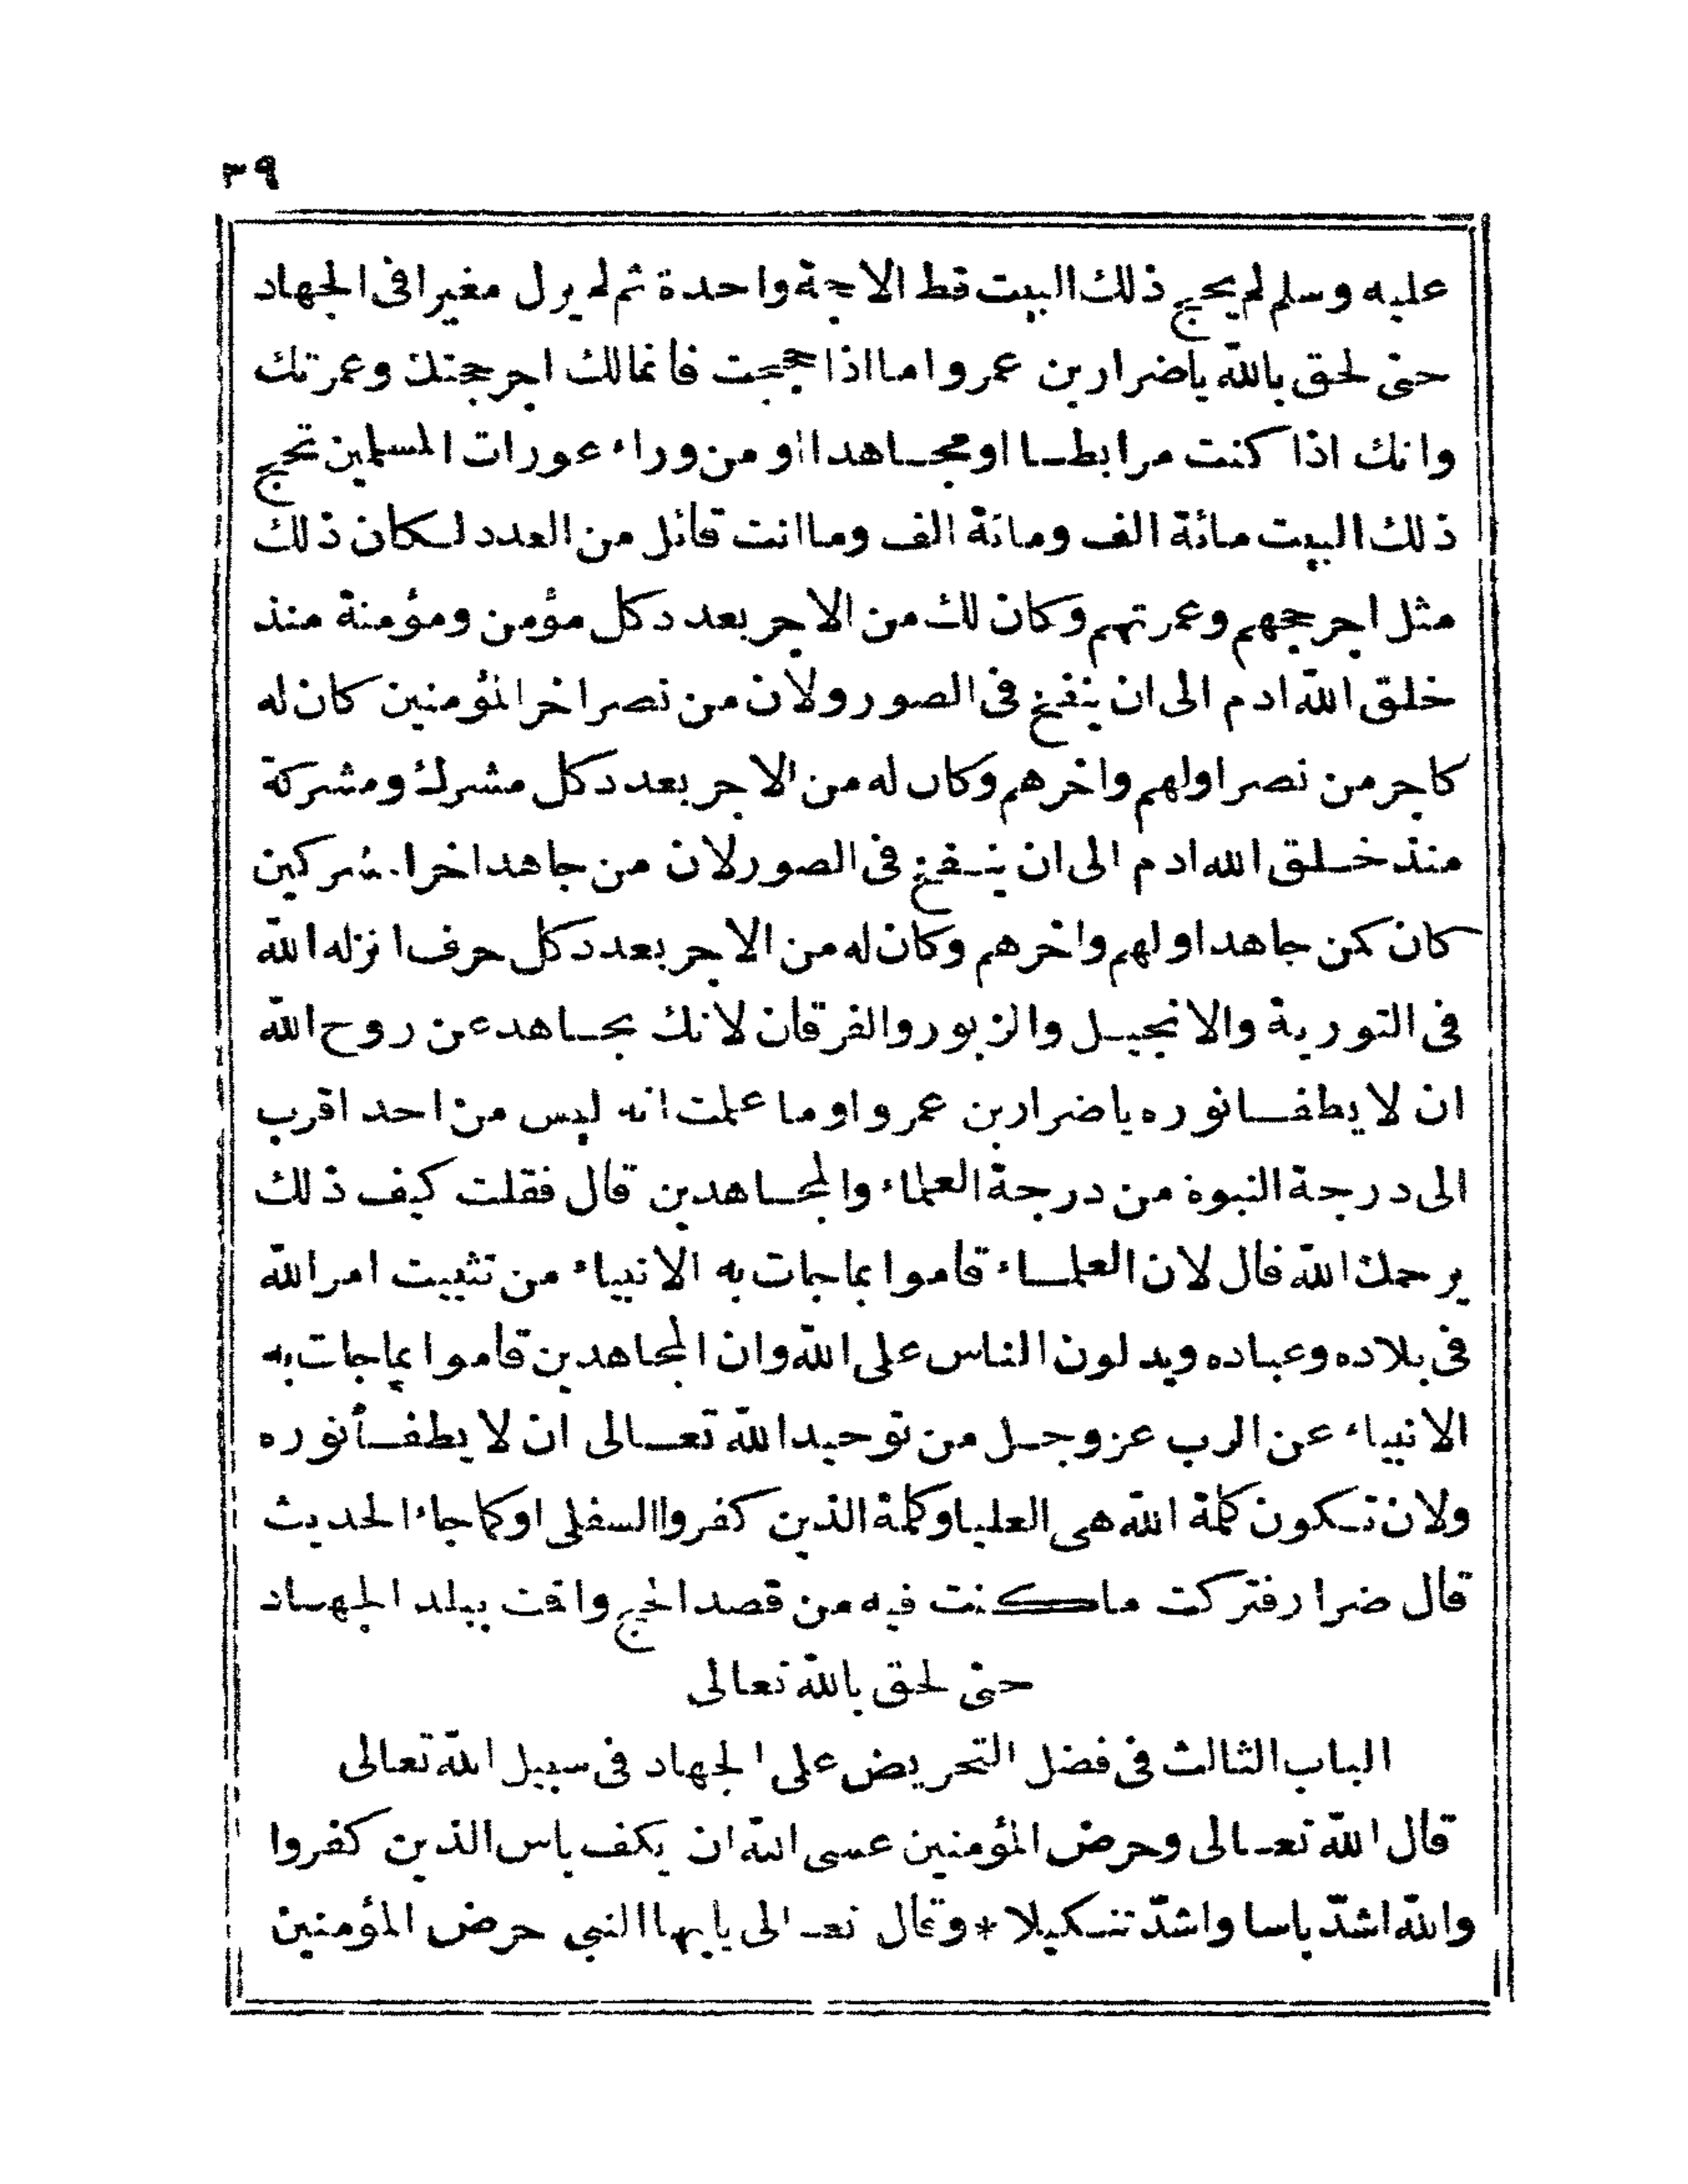 ٣٩
عليه وسلم لم يحج ذلك البيت قط الا حجة واحدة ثم لم يزل مغيرا فى الجهاد
حتى لحق بالله ياضرار بن عمرو اما اذا حججت فانمالك اجر حجتك وعمرتك
وانك اذا كنت مرابطا او مجاهدا او من وراء عورات المسلمين تحج
ذلك البيت مائة الف ومائة الف وما انت قائل من العدد لكان ذلك
مثل اجر حجهم وعمرتهم وكان لك من الاجر بعدد كل مؤمن ومؤمنة منذ
خلق الله ادم الى ان ينفخ فى الصور ولان من نصر اخر المؤمنين كان له
كاجر من نصر اولهم واخرهم وكان له من الاجر بعدد كل مشرك ومشركة
منذ خلق الله ادم الى ان ينفخ فى الصور لان من جاهد اخر المشركين
كان كمن جاهد اولهم واخرهم وكان له من الاجر بعدد كل حرف انزله الله
فى التورية والانجيل والزبور والفرقان لانك تجاهد عن روح الله
ان لا يطفا نوره ياضرار بن عمرو اوما علمت انه ليس من احد اقرب
الى درجة النبوة من درجة العلماء والمجاهدين قال فقلت كيف ذلك
يرحمك الله قال لان العلماء قاموا بماجات به الانبياء من تثبيت امر الله
فى بلاده وعباده ويدلون الناس على الله وان المجاهدين قاموا بماجات به
الانبياء عن الرب عز وجل من توحيد الله تعالى ان لا يطفأ نوره
ولان تكون كلمة الله هى العليا وكلمة الذين كفروا السفلى او كماجاء الحديث
قال ضرار فتركت ما كنت فيه من قصد الحج واقت ببلد الجهاد
حتى لحق بالله تعالى
الباب الثالث فى فضل التحريض على الجهاد فى سبيل الله تعالى
قال الله تعالى وحرض المؤمنين عسى الله ان يكف باس الذين كفروا
والله اشدّ باسا واشدّ تنكيلا * وقال تعالى يايها النبي حرض المؤمنين